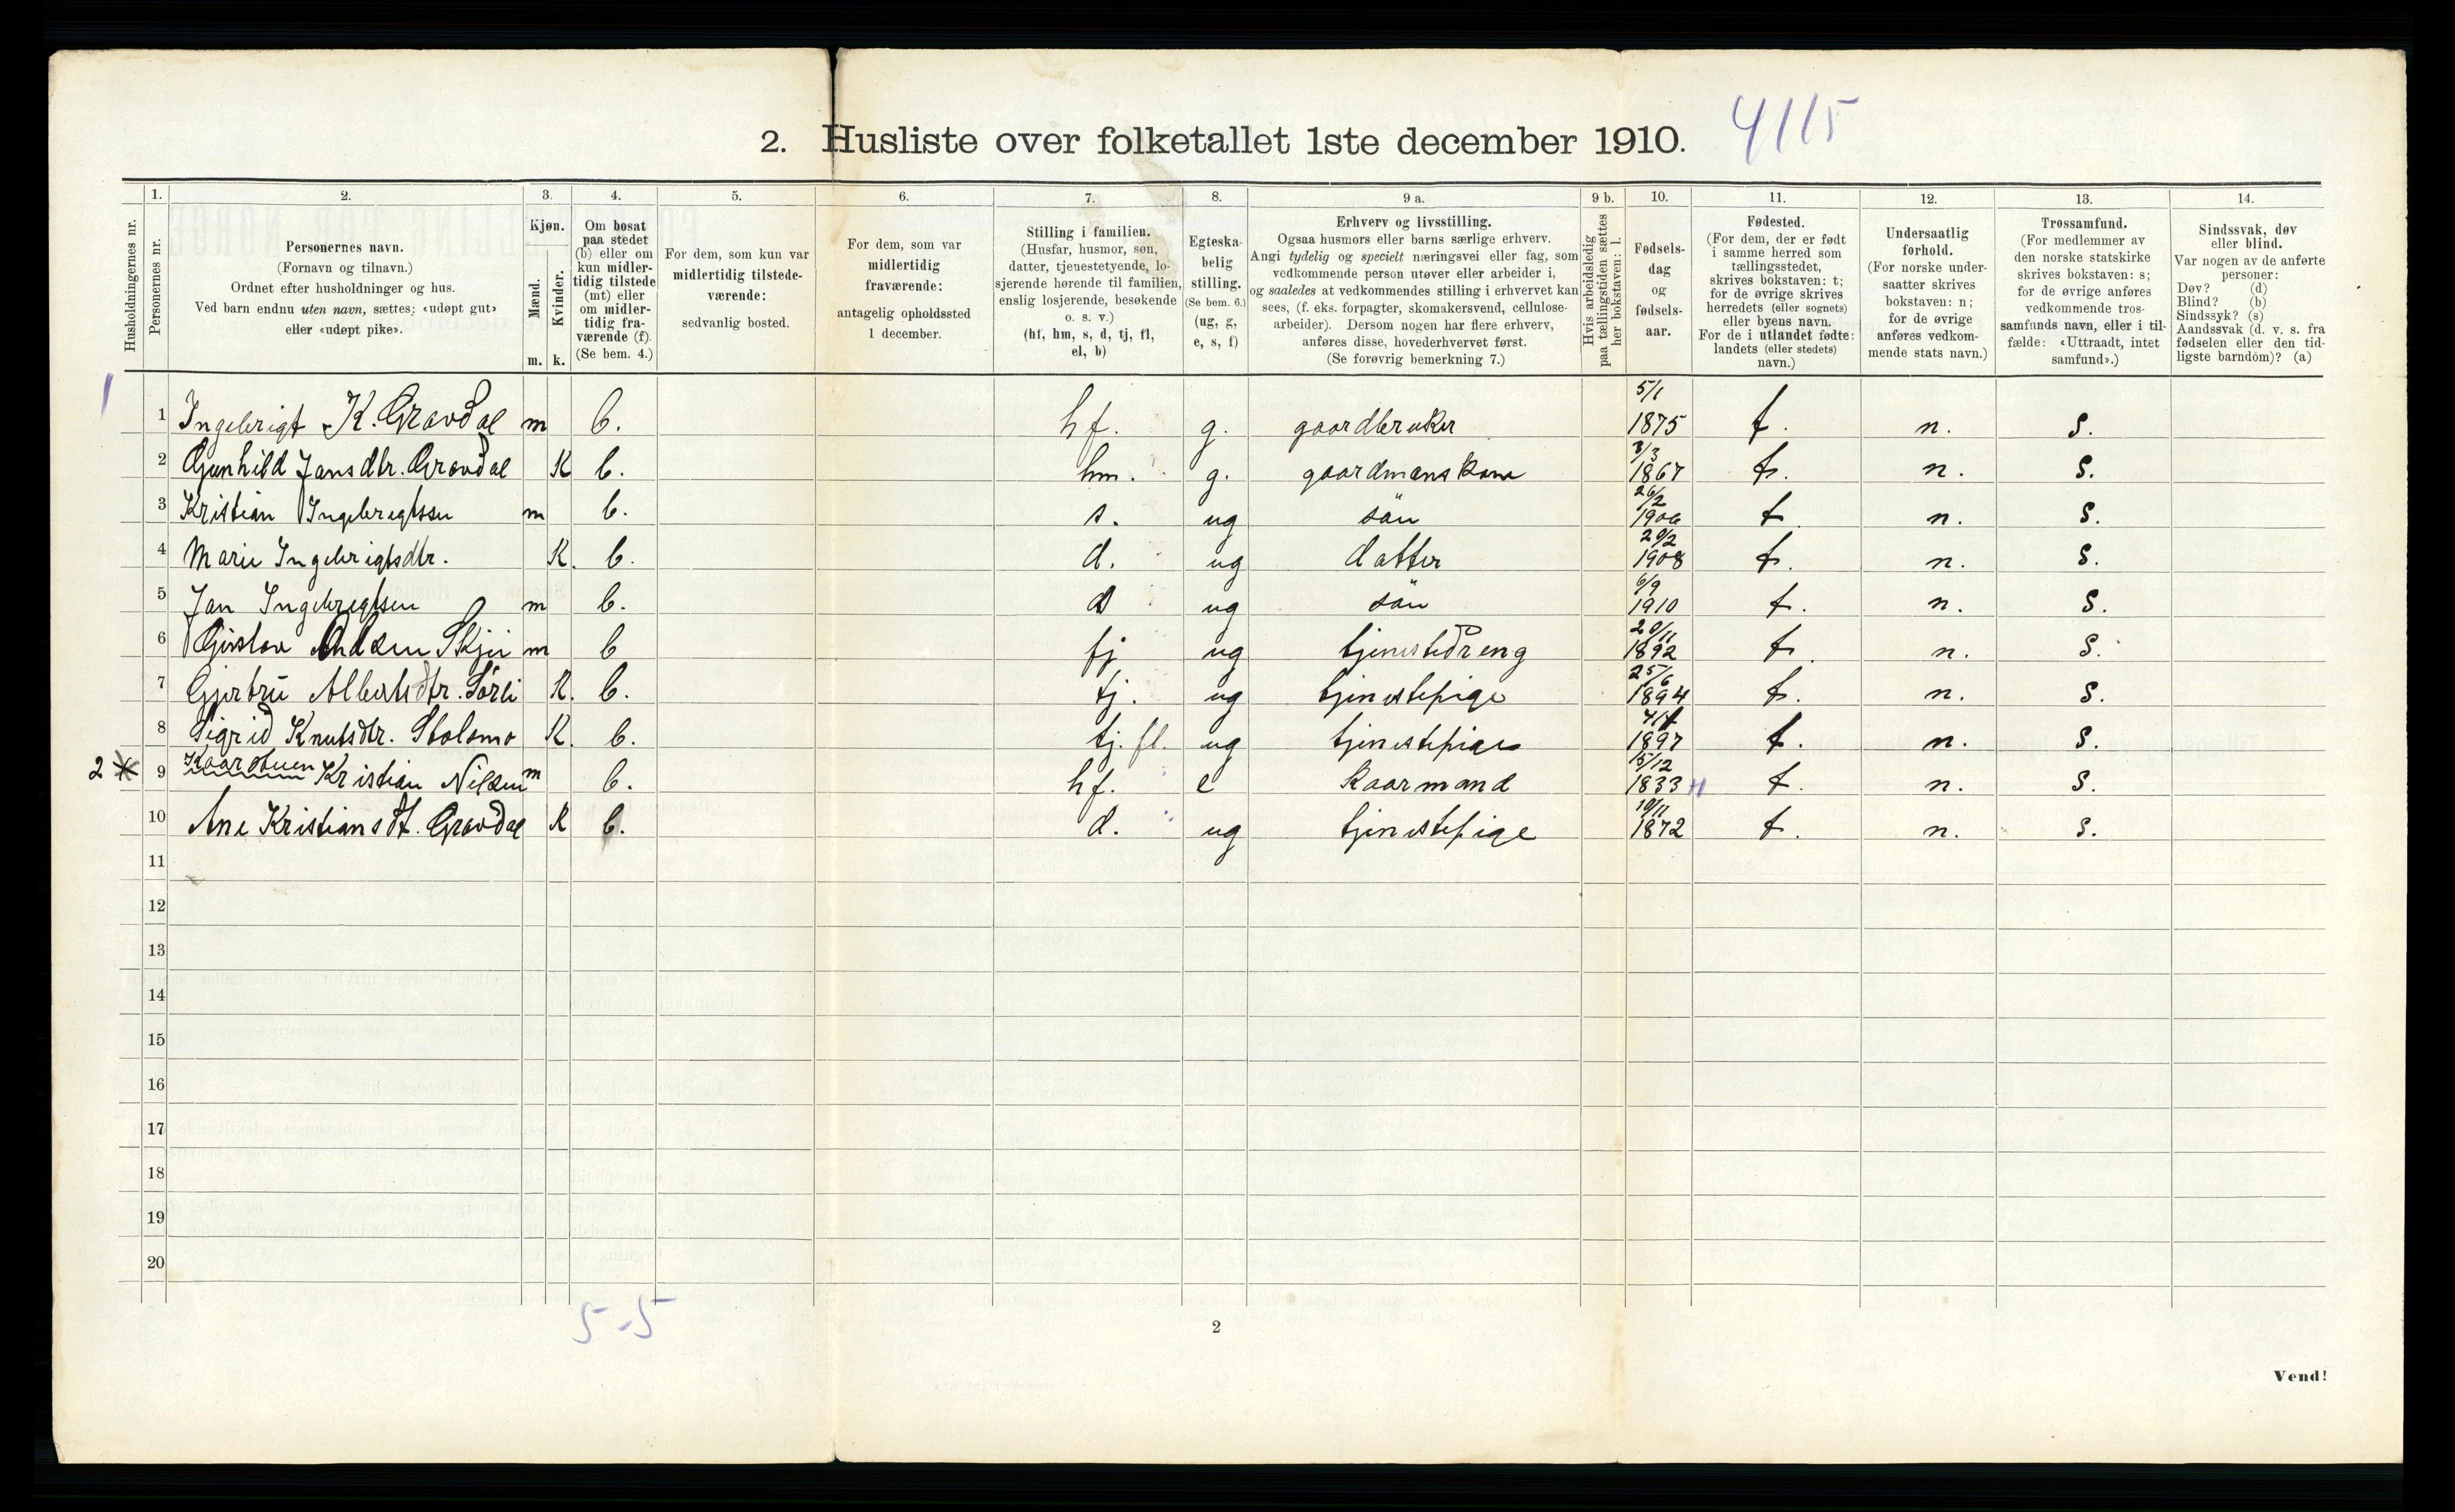 2. Husliste over folketallet 1ste december 1910. 4115
Husholdningernes nr.
1.
Personernes nr.
2.
Personernes navn.
(Fornavn og tilnavn.)
Ordnet efter husholdninger og hus.
Ved barn endnu uten navn, sættes: «udøpt gut»
eller «udøpt pike».
3.
Kjøn.
Mænd.
Kvinder.
m. k.
4.
Om bosat
paa stedet
(b) eller om
kun midler-
tidig tilstede
(mt) eller
om midler-
tidig fra-
værende (f).
(Se bem. 4.)
5.
For dem, som kun var
midlertidig tilstede-
værende:
sedvanlig bosted.
6.
For dem, som var
midlertidig
fraværende:
antagelig opholdssted
1 december.
7.
Stilling i familien.
(Husfar, husmor, søn,
datter, tjenestetyende, lo-
sjerende hørende til familien,
enslig losjerende, besøkende
o. s. v.)
(hf, hm, s, d, tj, fl,
el, b)
8.
Egteska-
belig
stilling.
(Se bem. 6.)
(ug, g,
e, s, f)
9 a.
Erhverv og livsstilling.
Ogsaa husmors eller barns særlige erhverv.
Angi tydelig og specielt næringsvei eller fag, som
vedkommende person utøver eller arbeider i,
og saaledes at vedkommendes stilling i erhvervet kan
sees, (f. eks. forpagter, skomakersvend, cellulose-
arbeider). Dersom nogen har flere erhverv,
anføres disse, hovederhvervet først.
(Se forøvrig bemerkning 7.)
9 b.
Hvis arbeidsledig
paa tællingstiden sættes
her bokstaven: l.
10.
Fødsels-
dag
og
fødsels-
aar.
11.
Fødested.
(For dem, der er født
i samme herred som
tællingsstedet,
skrives bokstaven: t;
for de øvrige skrives
herredets (eller sognets)
eller byens navn.
For de i utlandet fødte:
landets (eller stedets)
navn.)
12.
Undersaatlig
forhold.
(For norske under-
saatter skrives
bokstaven: n;
for de øvrige
anføres vedkom-
mende stats navn.)
13.
Trossamfund.
(For medlemmer av
den norske statskirke
skrives bokstaven: s;
for de øvrige anføres
vedkommende tros-
samfunds navn, eller i til-
fælde: «Uttraadt, intet
samfund».)
14.
Sindssvak, døv
eller blind.
Var nogen av de anførte
personer:
Døv? (d)
Blind? (b)
Sindssyk? (s)
Aandssvak (d. v. s. fra
fødselen eller den tid-
ligste barndom)? (a)
1 1 Ingebrigt K. Gravdal m b. hf. g. gaardbruker 5/1 1875 t. n. s.
2 Gunhild Jansdtr. Gravdal K b. hm. g. gaardmanskone 3/3 1867 t. n. s.
3 Kristian Ingebregtssen m b. s. ug sön 26/2 1906 t n. s.
4 Marie Ingebrigtsdtr. K. b. d. ug datter 20/2 1908 t. n. s.
5 Jan Ingebregtsen m b. ug sön 6/9 1910 t. n. s.
6 m b tj ug tjenestedreng 20/11 1892 t. n. s.
7 Gjertrü Albertsdtr. Sörli K. b. tj. ug tjenestepige 25/6 1894 t. n. s.
8 Sigrid Knutsdtr. Stolsmo K. b. tj. fl. ug tjenestepige 1897 t. n. s.
2 * 9 Kaarstuen Kristian Nilsen m b. hf. e Kaarmand 15/12 1833 t. n. s.
10 Ane Kristiansdt. Gravdal K b. d. ug tjenestepige 10/11 1872 t. n. s.
11
12
13
14
15
16
17
18
19
20
5-5
2
Vend!